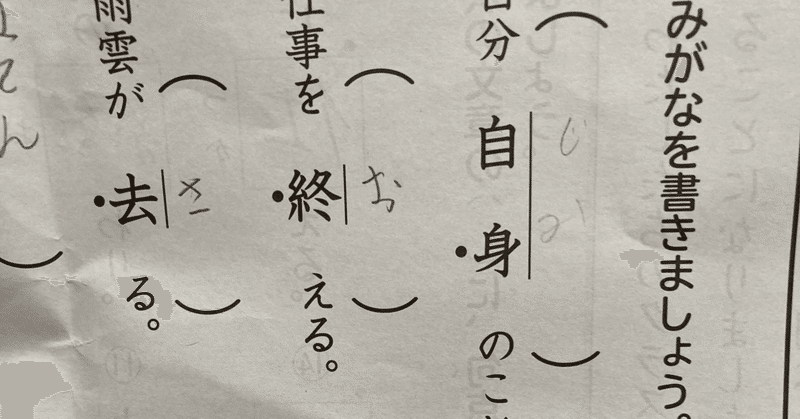 みがなを書きましょう。
じ
自分 自身 のこ
お
仕事を 終 える。
さ
雨雲が 去 る。